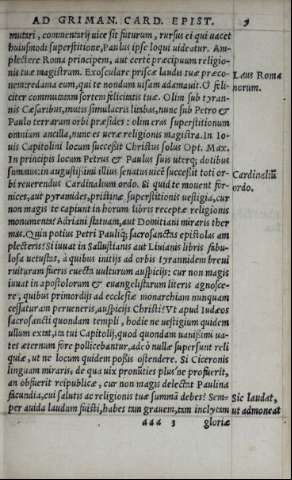 AD GRIMAN. CARD. EPIST. 9
mutari, commentarij uice sit futurum, rursus ei qui uacet
huiusmodi superstitione, Paulus ipse loqui uideatur. Am-
plectere Roma principem, aut certe præcipuum religio-
nis tuæ magistram. Exosculare priscæ laudis tuæ præco-
nem: redama eum, qui te nondum uisam adamauit. O feli-
citer commutatam sortem felicitatis tuæ. Olim sub tyran-
nis Cæsaribus, mutis simulacris litabas, nunc sub Petro &
Paulo terrarum orbi præsides: olim eras superstitionum
omnium ancilla, nunc es ueræ religionis magistra. In Io-
uis Capitolini locum successit Christus solus Opt. Max.
In principis locum Petrus & Paulus suis uterq; dotibus
summus: in augustissimi illius senatus uice successit toti or-
bi reuerendus Cardinalium ordo. Si quid te mouent for-
nices, aut pyramides, pristinæ superstitionis uestigia, cur
non magis te capiunt in horum libris receptæ religionis
monumenta? Adriani statuam, aut Domitiani miraris ther
mas. Quin potius Petri Pauliq; sacrosanctas epistolas am
plecteris? Si iuuat in Sallustianis aut Liuianis libris fabu-
losa uetustas, à quibus initijs ad orbis tyrannidem breui
ruituram fueris euecta uulturum auspicijs: cur non magis
iuuat in apostolorum & euangelistarum literis agnosce-
re, quibus primordijs ad ecclesiæ monarchiam nunquam
cessaturam perueneris, auspicijs Christi? Vt apud Iudæos
sacrosancti quondam templi, hodie ne uestigium quidem
ullum extat, ita tui Capitolij, quod quondam uanissimi ua-
tes æternum fore pollicebantur, adeò nullæ supersunt reli
quiæ, ut ne locum quidem possis ostendere. Si Ciceronis
linguam miraris, de qua uix pronuncies plus'ne profuerit,
an obfuerit reipublicæ, cur non magis delectat Paulina
facundia, cui salutis ac religionis tuæ summam debes? Sem-
per auida laudum fuisti, habes tam grauem, tam inclytum
aaa 3 gloriæ
Laus Roma
norum.
Cardinaliũ
ordo.
Sic laudat,
ut admoneat